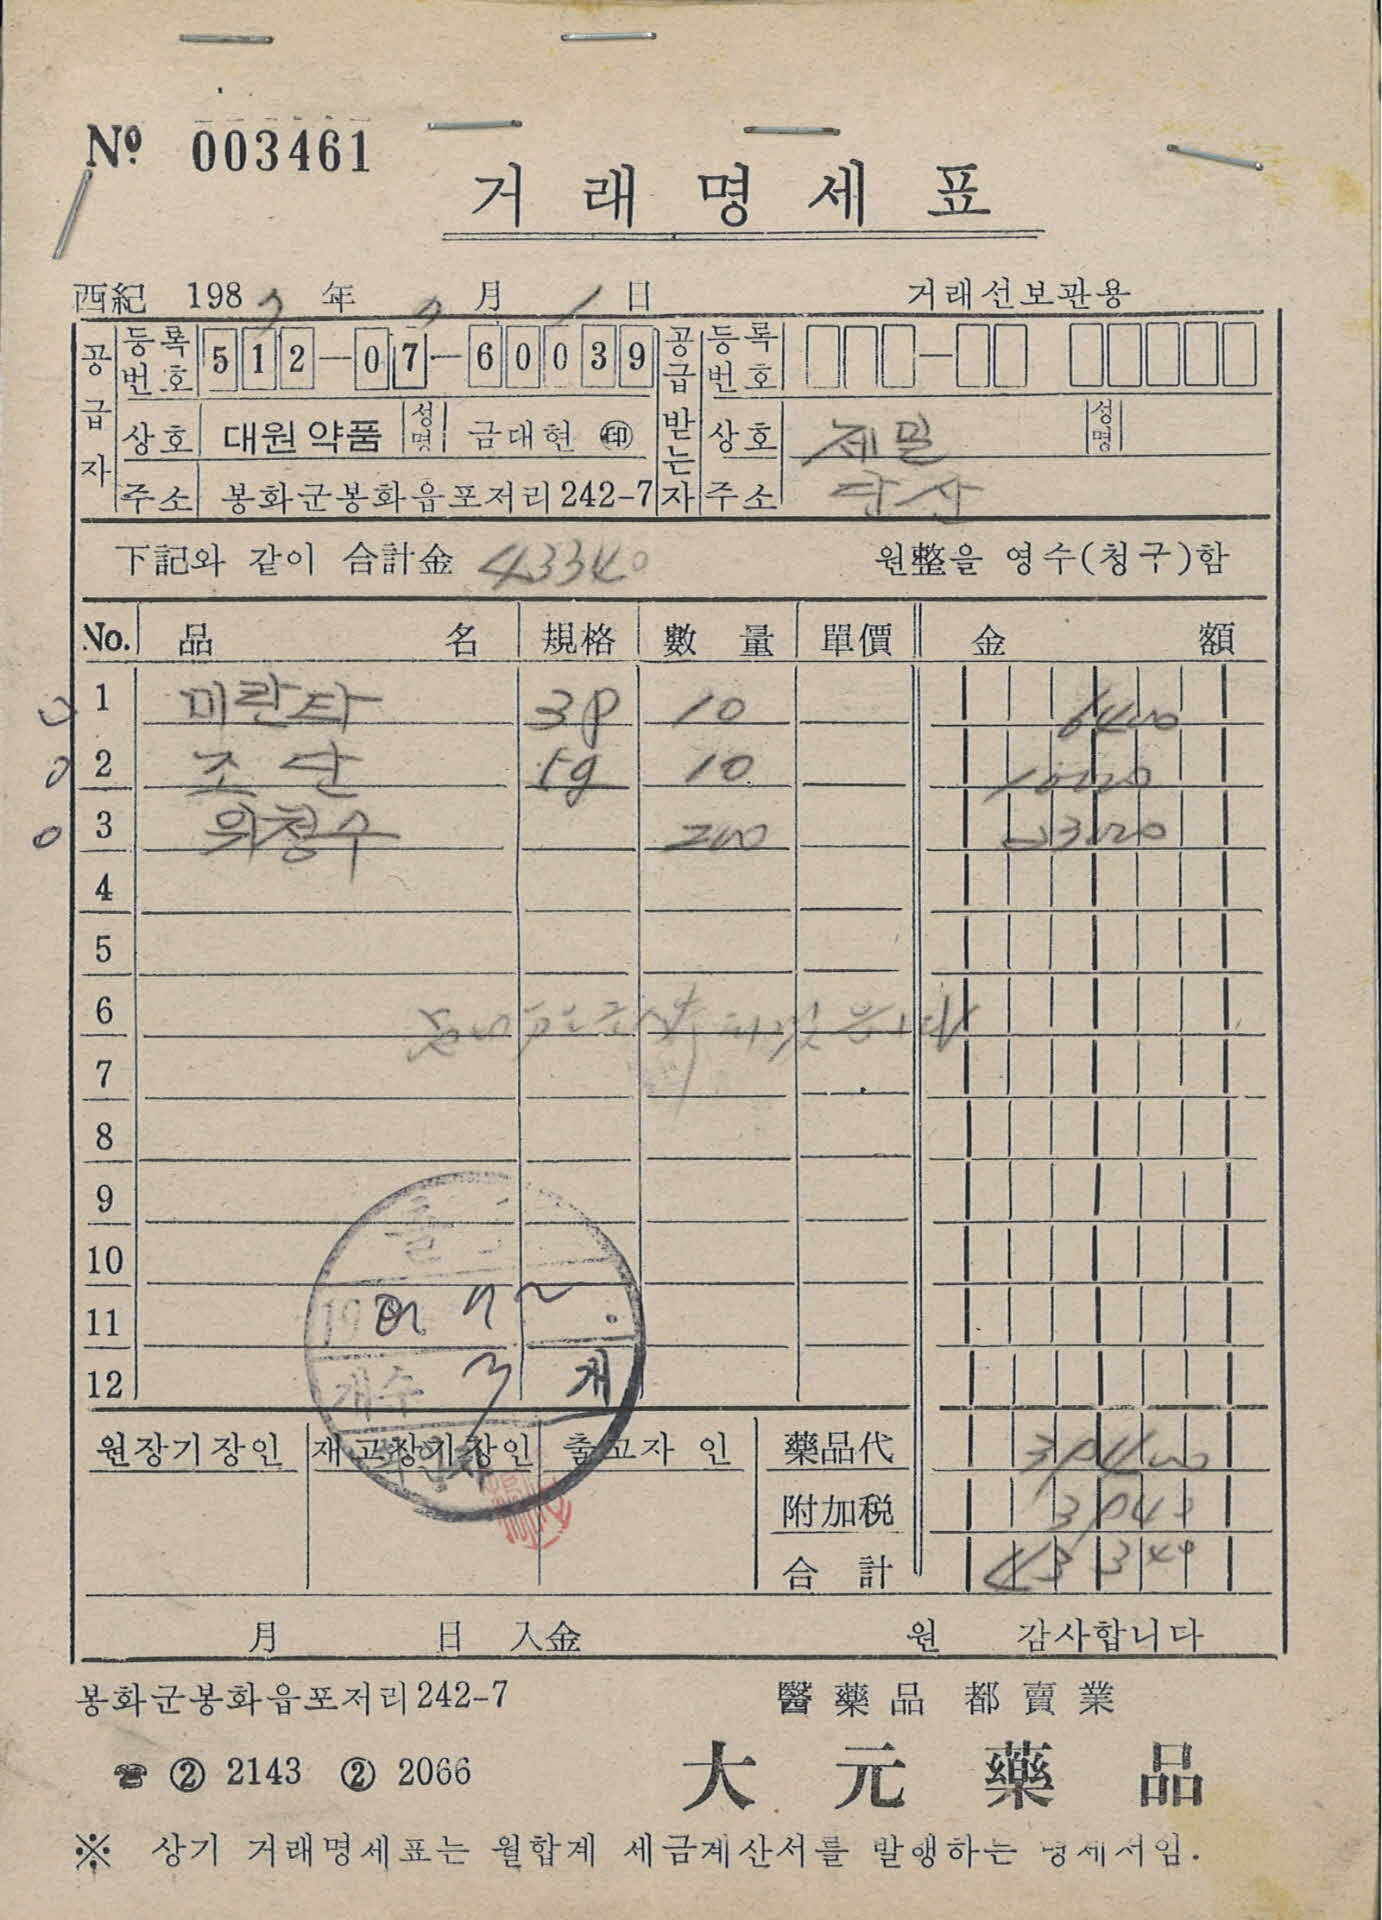 No. 003461
거래명세표
西紀 198 年 月 日 거래선보관용
공급자 등록번호 512-07-60039 공급받는자 등록번호 -
상호 대원약품 성명 금대현 印 상호 제밀 성명
주소 봉화군봉화읍포저리242-7 주소 단산
下記와 같이 合計金 43340 원整을 영수(청구)함
No. 品名 規格 數量 單價 金額
1 미란타 3p 10 6400
2 조단 5g 10
3 위청수 200
4
5
6
7
8
9
10
11
12
개수 3 개
원장기장인 재고장기장인 출고자 인 藥品代
附加税
合計 43340
月 日 入金 원 감사합니다
봉화군봉화읍포저리242-7 醫藥品 都賣業
☎ ② 2143 ② 2066 大元藥品
※ 상기 거래명세표는 월합계 세금계산서를 발행하는 명세서임.